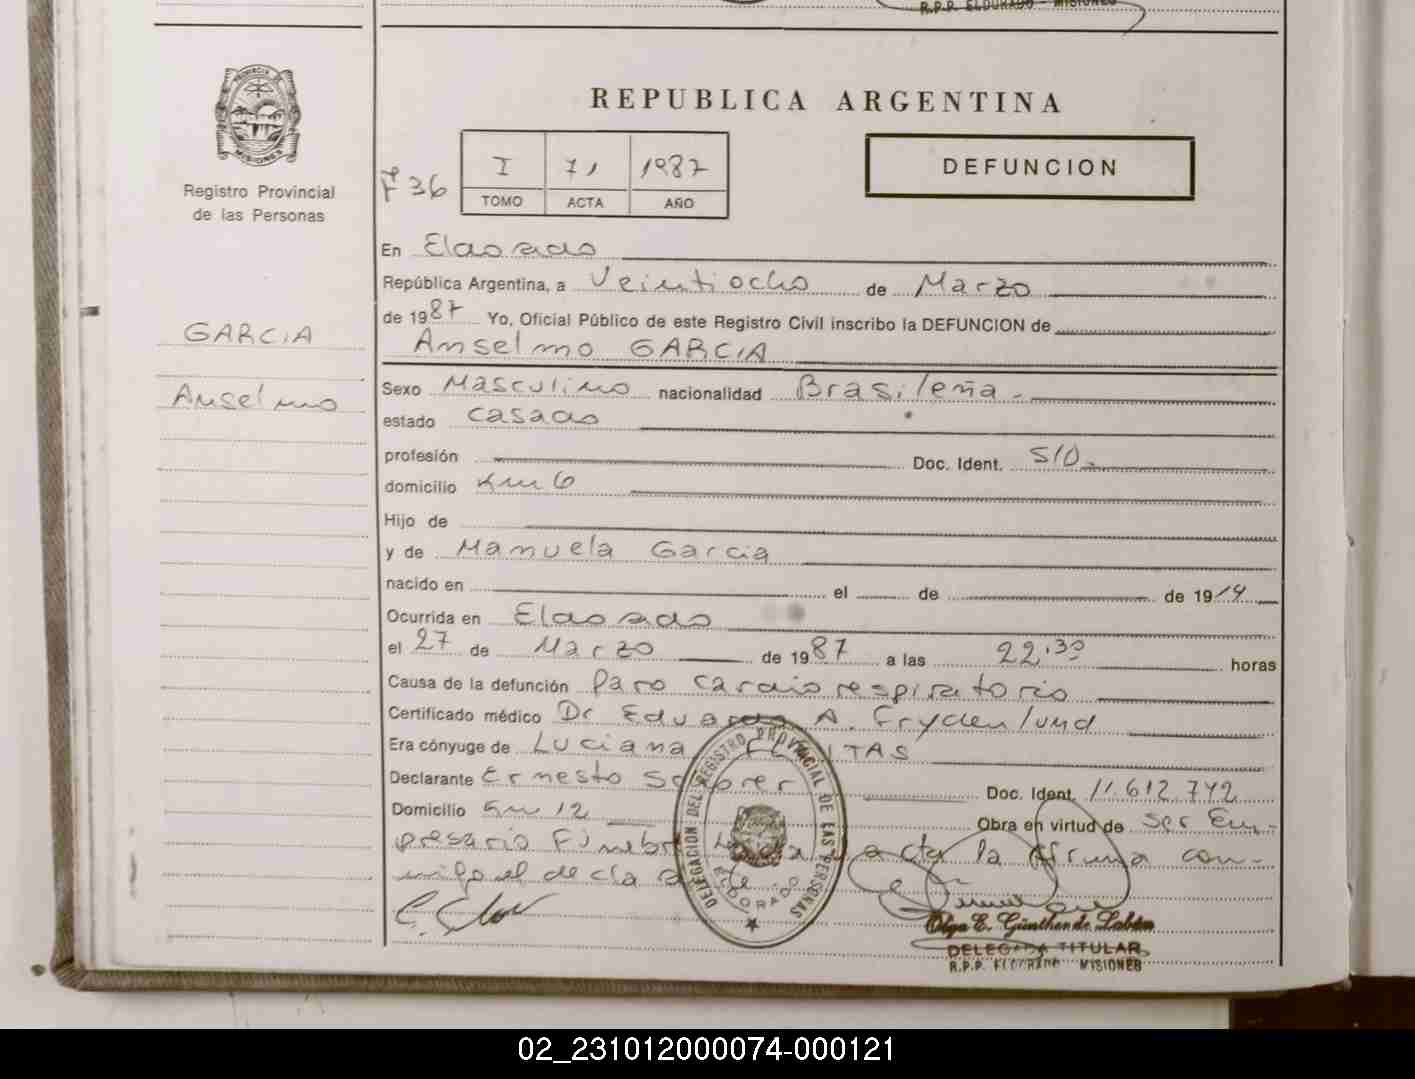 R.P.P. ELDORADO - MISIONES
PROVINCIA DE
MISIONES
Registro Provincial
de las Personas
GARCIA
Anselmo
REPUBLICA ARGENTINA
Fº 36
I 71 1987
TOMO ACTA AÑO
DEFUNCION
En Eldorado
República Argentina, a Veintiocho de Marzo
de 1987 Yo, Oficial Público de este Registro Civil inscribo la DEFUNCION de
Anselmo GARCIA
Sexo Masculino nacionalidad Brasileña.
estado casado
profesión Doc. Ident. S/D.
domicilio Km 6
Hijo de
y de Manuela Garcia
nacido en el de de 1914
Ocurrida en Eldorado
el 27 de Marzo de 1987 a las 22:30 horas
Causa de la defunción Paro cardiorespiratorio
Certificado médico Dr Eduardo A. Frydenlund
Era cónyuge de Luciana ITAS
Declarante Ernesto Doc. Ident. 11.612.742
Domicilio Km 12 Obra en virtud de ser Em-
presario Fúnebre acta la firma con-
migo el declarante
DELEGACION DEL REGISTRO PROVINCIAL DE LAS PERSONAS
ELDORADO
Olga E. Günther de Labán
DELEGADA TITULAR
R.P.P. ELDORADO MISIONES
02_231012000074-000121